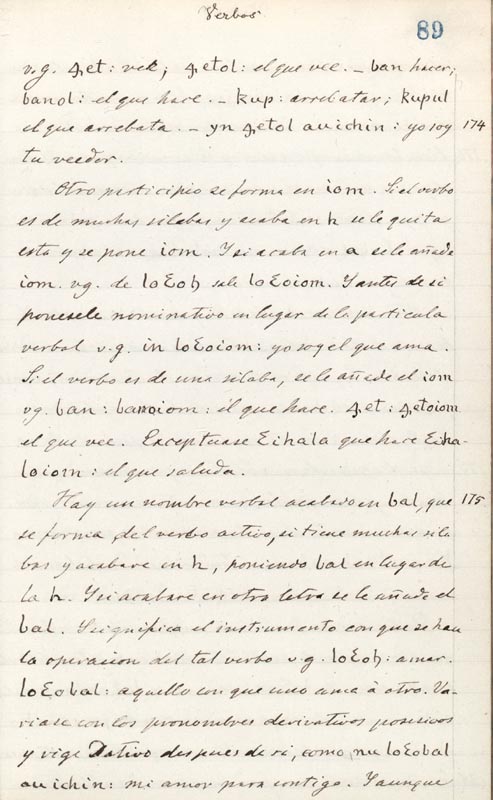 Verbos
89
v.g. ꜭet: vek; ꜭetol: el que vee. _ ban hacer;
banol: el que hace. _ kup: arrebatar; kupul
el que arrebata. _ yn ꜭetol auichin: yo soy 174
tu veedor.
Otro participio se forma en iom. Si el verbo
es de muchas silabas y acaba en h se le quita
esta y se pone iom. Y si acaba en a se le añade
iom. vg. de loƐoh sale loƐoiom. Y antes de si
ponesele nominativo en lugar de la particula
verbal v.g. in loƐoiom: yo soy el que ama.
Si el verbo es de una silaba, se le añade el iom
vg. ban: banoiom: el que hace. ꜭet: ꜭetoiom
el que vee. Exceptuase Ɛihala que hace Ɛiha-
loiom: el que saluda.
Hay un nombre verbal acabado en bal, que 175
se forma del verbo activo, si tiene muchas sila
bas y acabare en h, poniendo bal en lugar de
la h. Y si acabare en otra letra se le añade el
bal. Y significa el instrumento con que se hau
la operacion del tal verbo v.g. loƐoh: amar.
loƐobal: aquello con que uno ama à otro. Va-
riase con los pronombres derivativos posesivos
y rige Dativo despues de si, como, nu loƐobal
au ichin: mi amor para contigo. Y aunque